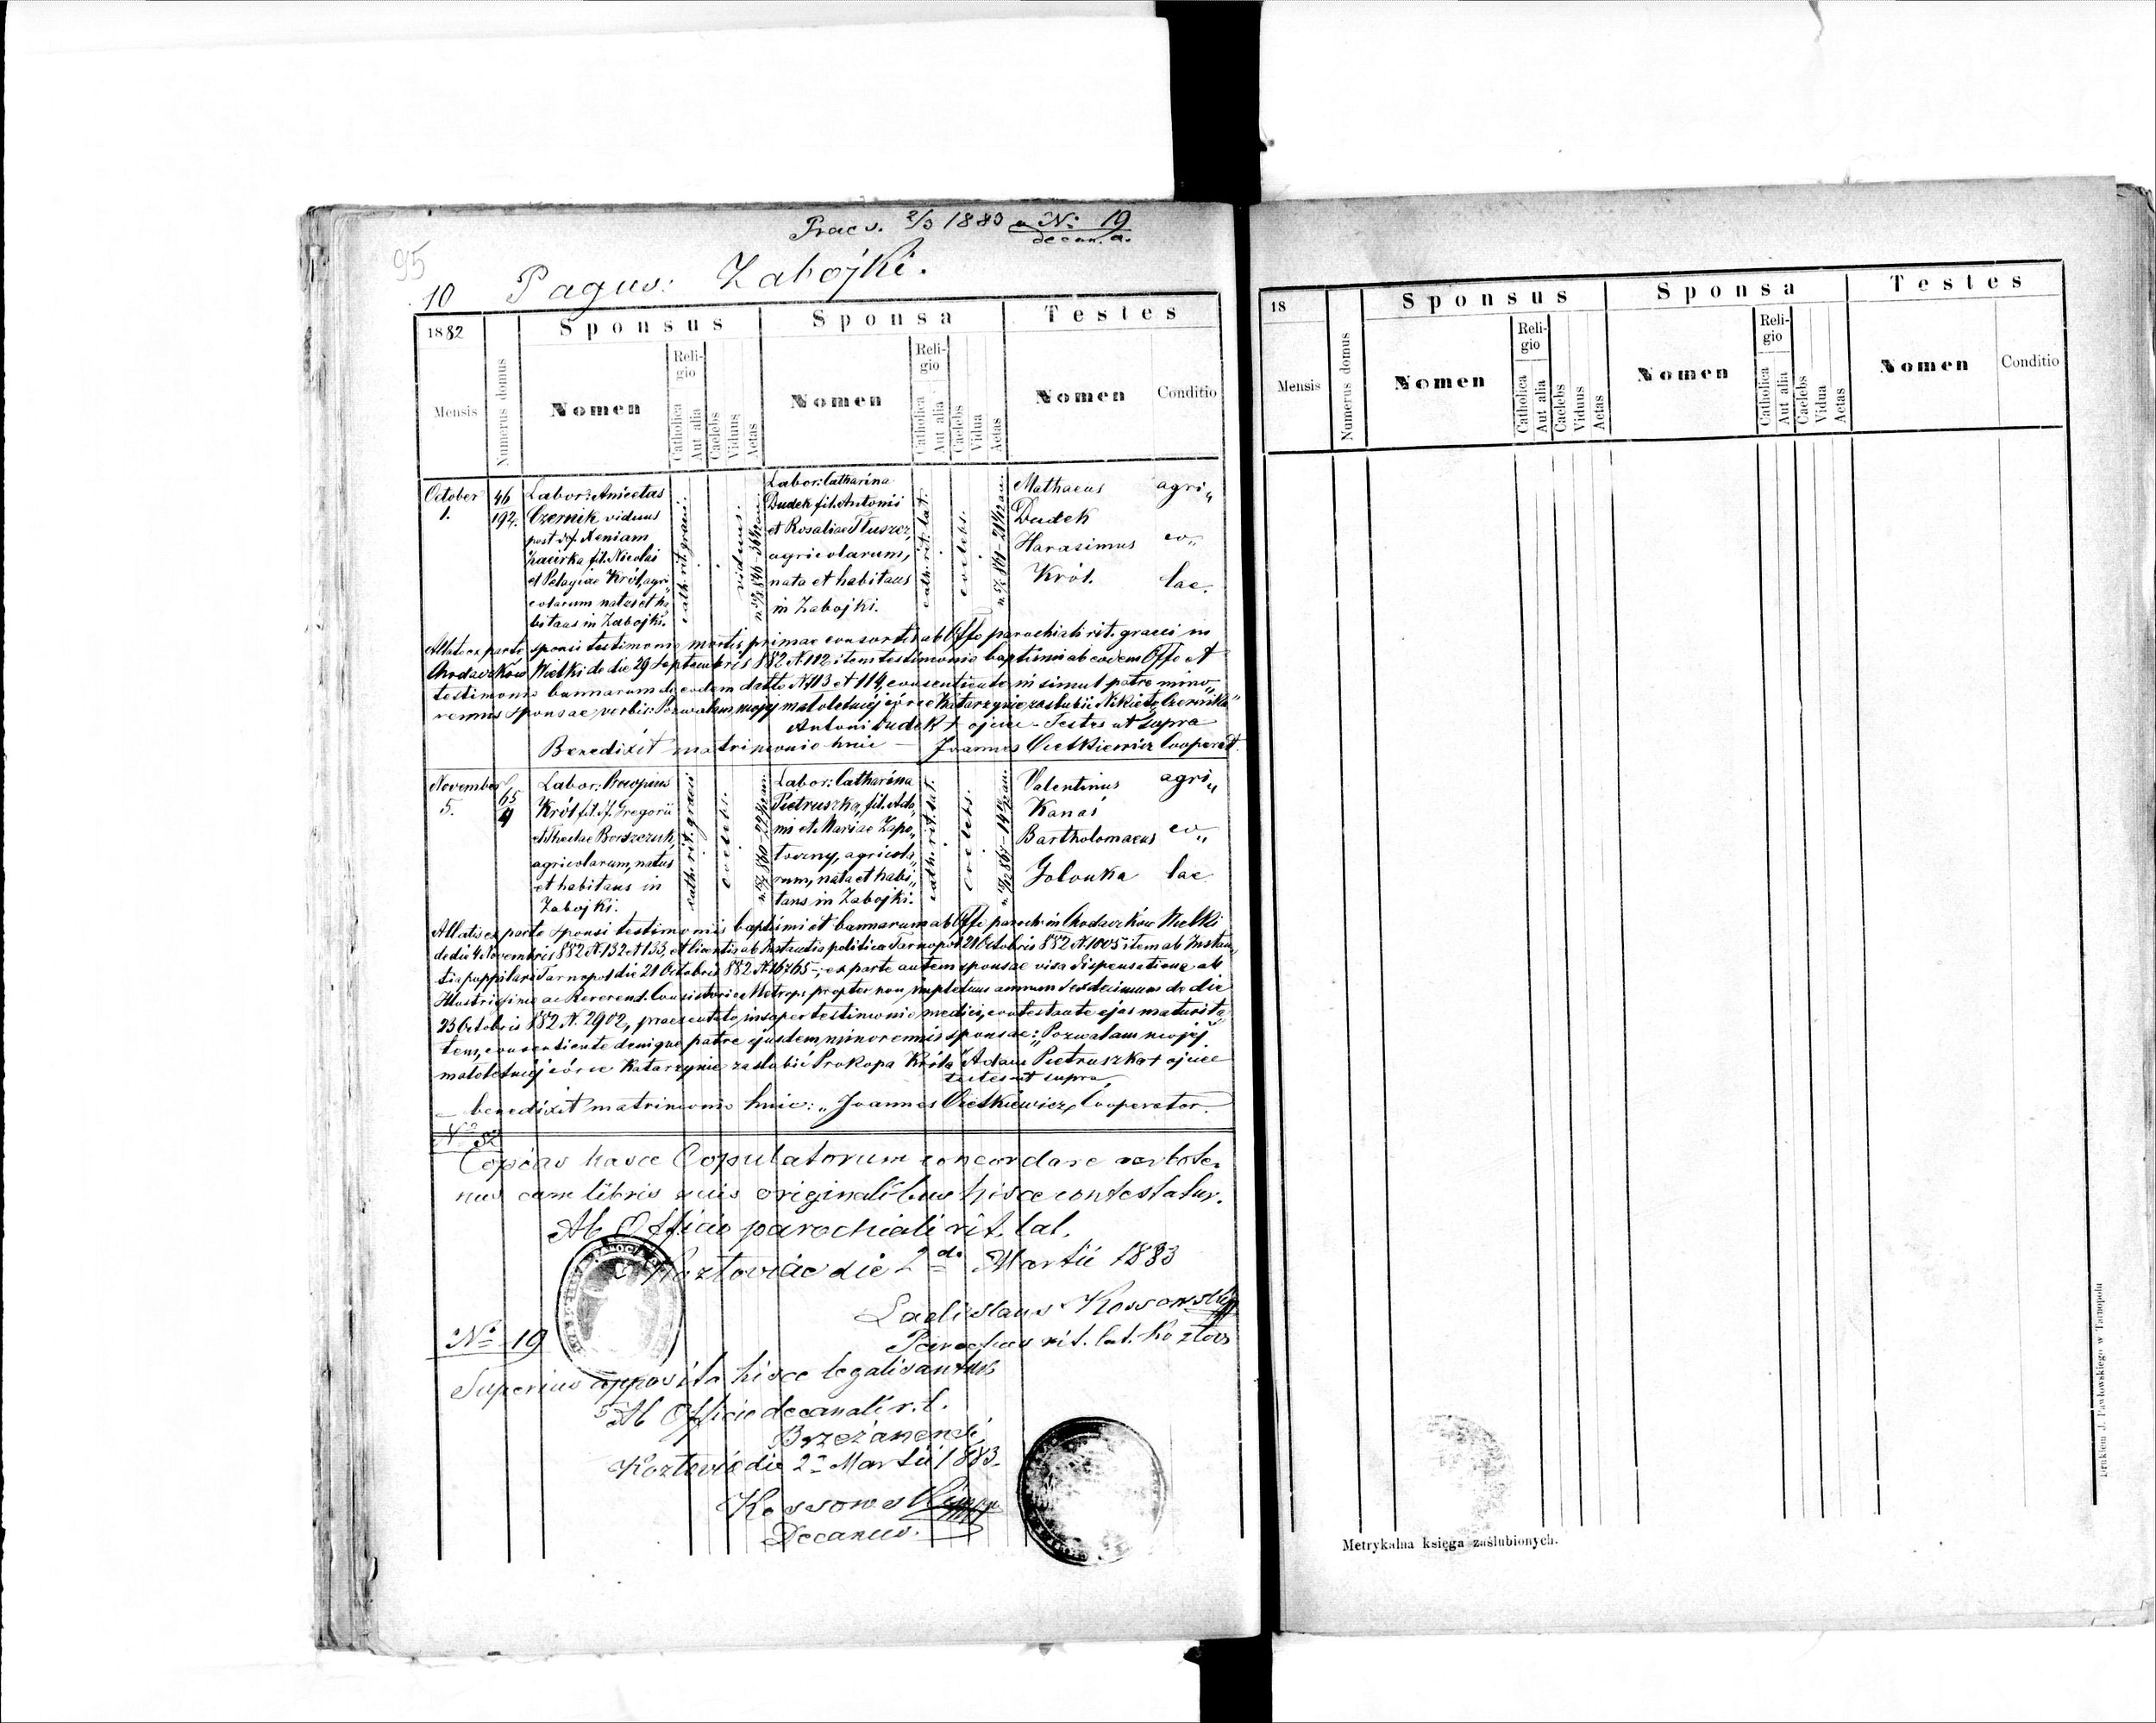 Praes. 2/3 1883 N: 19
decan. a.
95
10 Pagus: Zabojki.
1882 Sponsus Sponsa Testes
Mensis Numerus domus Nomen Religio Catholica Aut alia Caelebs Viduus Aetas Nomen Religio Catholica Aut alia Caelebs Vidua Aetas Nomen Conditio
October
1.
46
192.
Labor: Anicetus
Czernik viduus
post def. Xeniam
fil. Nicolai
et Pelagiae Król, agri„
colarum natus et ha„
bitans in Zabojki.
cath. rit. graeci.
viduus.
Labor: Catharina
Dudek fil. Antonii
et Rosaliae Tłuszcz,
agricolarum,
nata et habitans
in Zabojki.
cath. rit. lat.
coelebs.
Mathaeus
Dudek
Harasimus
Król.
agri„
co„
lae.
Allato ex parte sponsi testimonio mortis primae consortis ab Offo parochiali rit. graeci in
Chodaczków Wielki de die 29 Septembris 882 N. 112 item testimonio baptismi ab eodem Offo et
testimonio bannarum de eodem datto N. 113 et 114, consentiente in simul patre mino„
rennis sponsae verbis: Pozwalam mojej małoletniej córce Katarzynie zaslubić Nikietę Czernika"
Antoni Dudek + ojciec - Testes ut supra
Benedixit matrimonio huic — Joannes Cietkiewicz Cooperat.
November
5.
65
4
Labor: Procopius
Król fil. def. Gregorii
et Theclae Borszczuk,
agricolarum, natus
et habitans in
Zabojki.
cath. rit. graeci
coelebs.
Labor: Catharina
Pietruszka, fil. Ada„
mi et Mariae Zapo„
toczny, agricola„
rum, nata et habi„
tans in Zabojki.
cath. rit. lat.
coelebs.
Valentinus
Kanas
Bartholomaeus
Jolonka
agri„
co„
lae
Allatis ex parte sponsi testimoniis baptismi et bannarum ab Offo paroch. in Chodaczków Wielki
de die 4 Novembris 882 N. 132 et 133, et licentia ab Instantia politica Tarnopol 21 Octobris 882 N. 1005 item ab Instan„
tia puppilari Tarnopol die 21 Octobris 882 N. 16765 -, ex parte autem sponsae visa dispensatione ab
Illustrissimo ac Reverend. Consistorio Metrop. propter non impletum annum sexdecimum de die
23 Octobris 882 N. 2902, praesentato insuper testimonio medici, contestante ejus maturita„
tem, consentiente denique patre ejusdem minorennis sponsae: „Pozwalam mojej
małoletniej córce Katarzynie zaslubić Prokopa Króla" Adam Pietruszka + ojciec
testes ut supra,
— benedixit matrimonio huic: „Joannes Cietkiewicz, Cooperator.
No 52
Copias hasce Copulatorum concordare verbote„
nus cum libris suis originalibus hisce contestatur.
Ab Officio parochiali rit. lat.
Kozłoviae die 2do Martii 1883
Ladislaus Kossowski
Parochus rit. lat. Kozłov
No 19
Superius apposita hisce legalisantur
Ab Officio decanali r. l.
Brzeżanensi
Kozłoviae die 2a Martii 1883.
Kossowski
Decanus.
18 Sponsus Sponsa Testes
Mensis Numerus domus Nomen Religio Catholica Aut alia Caelebs Viduus Aetas Nomen Religio Catholica Aut alia Caelebs Vidua Aetas Nomen Conditio
Metrykalna księga zaślubionych.
Drukiem J. Pawłowskiego w Tarnopolu